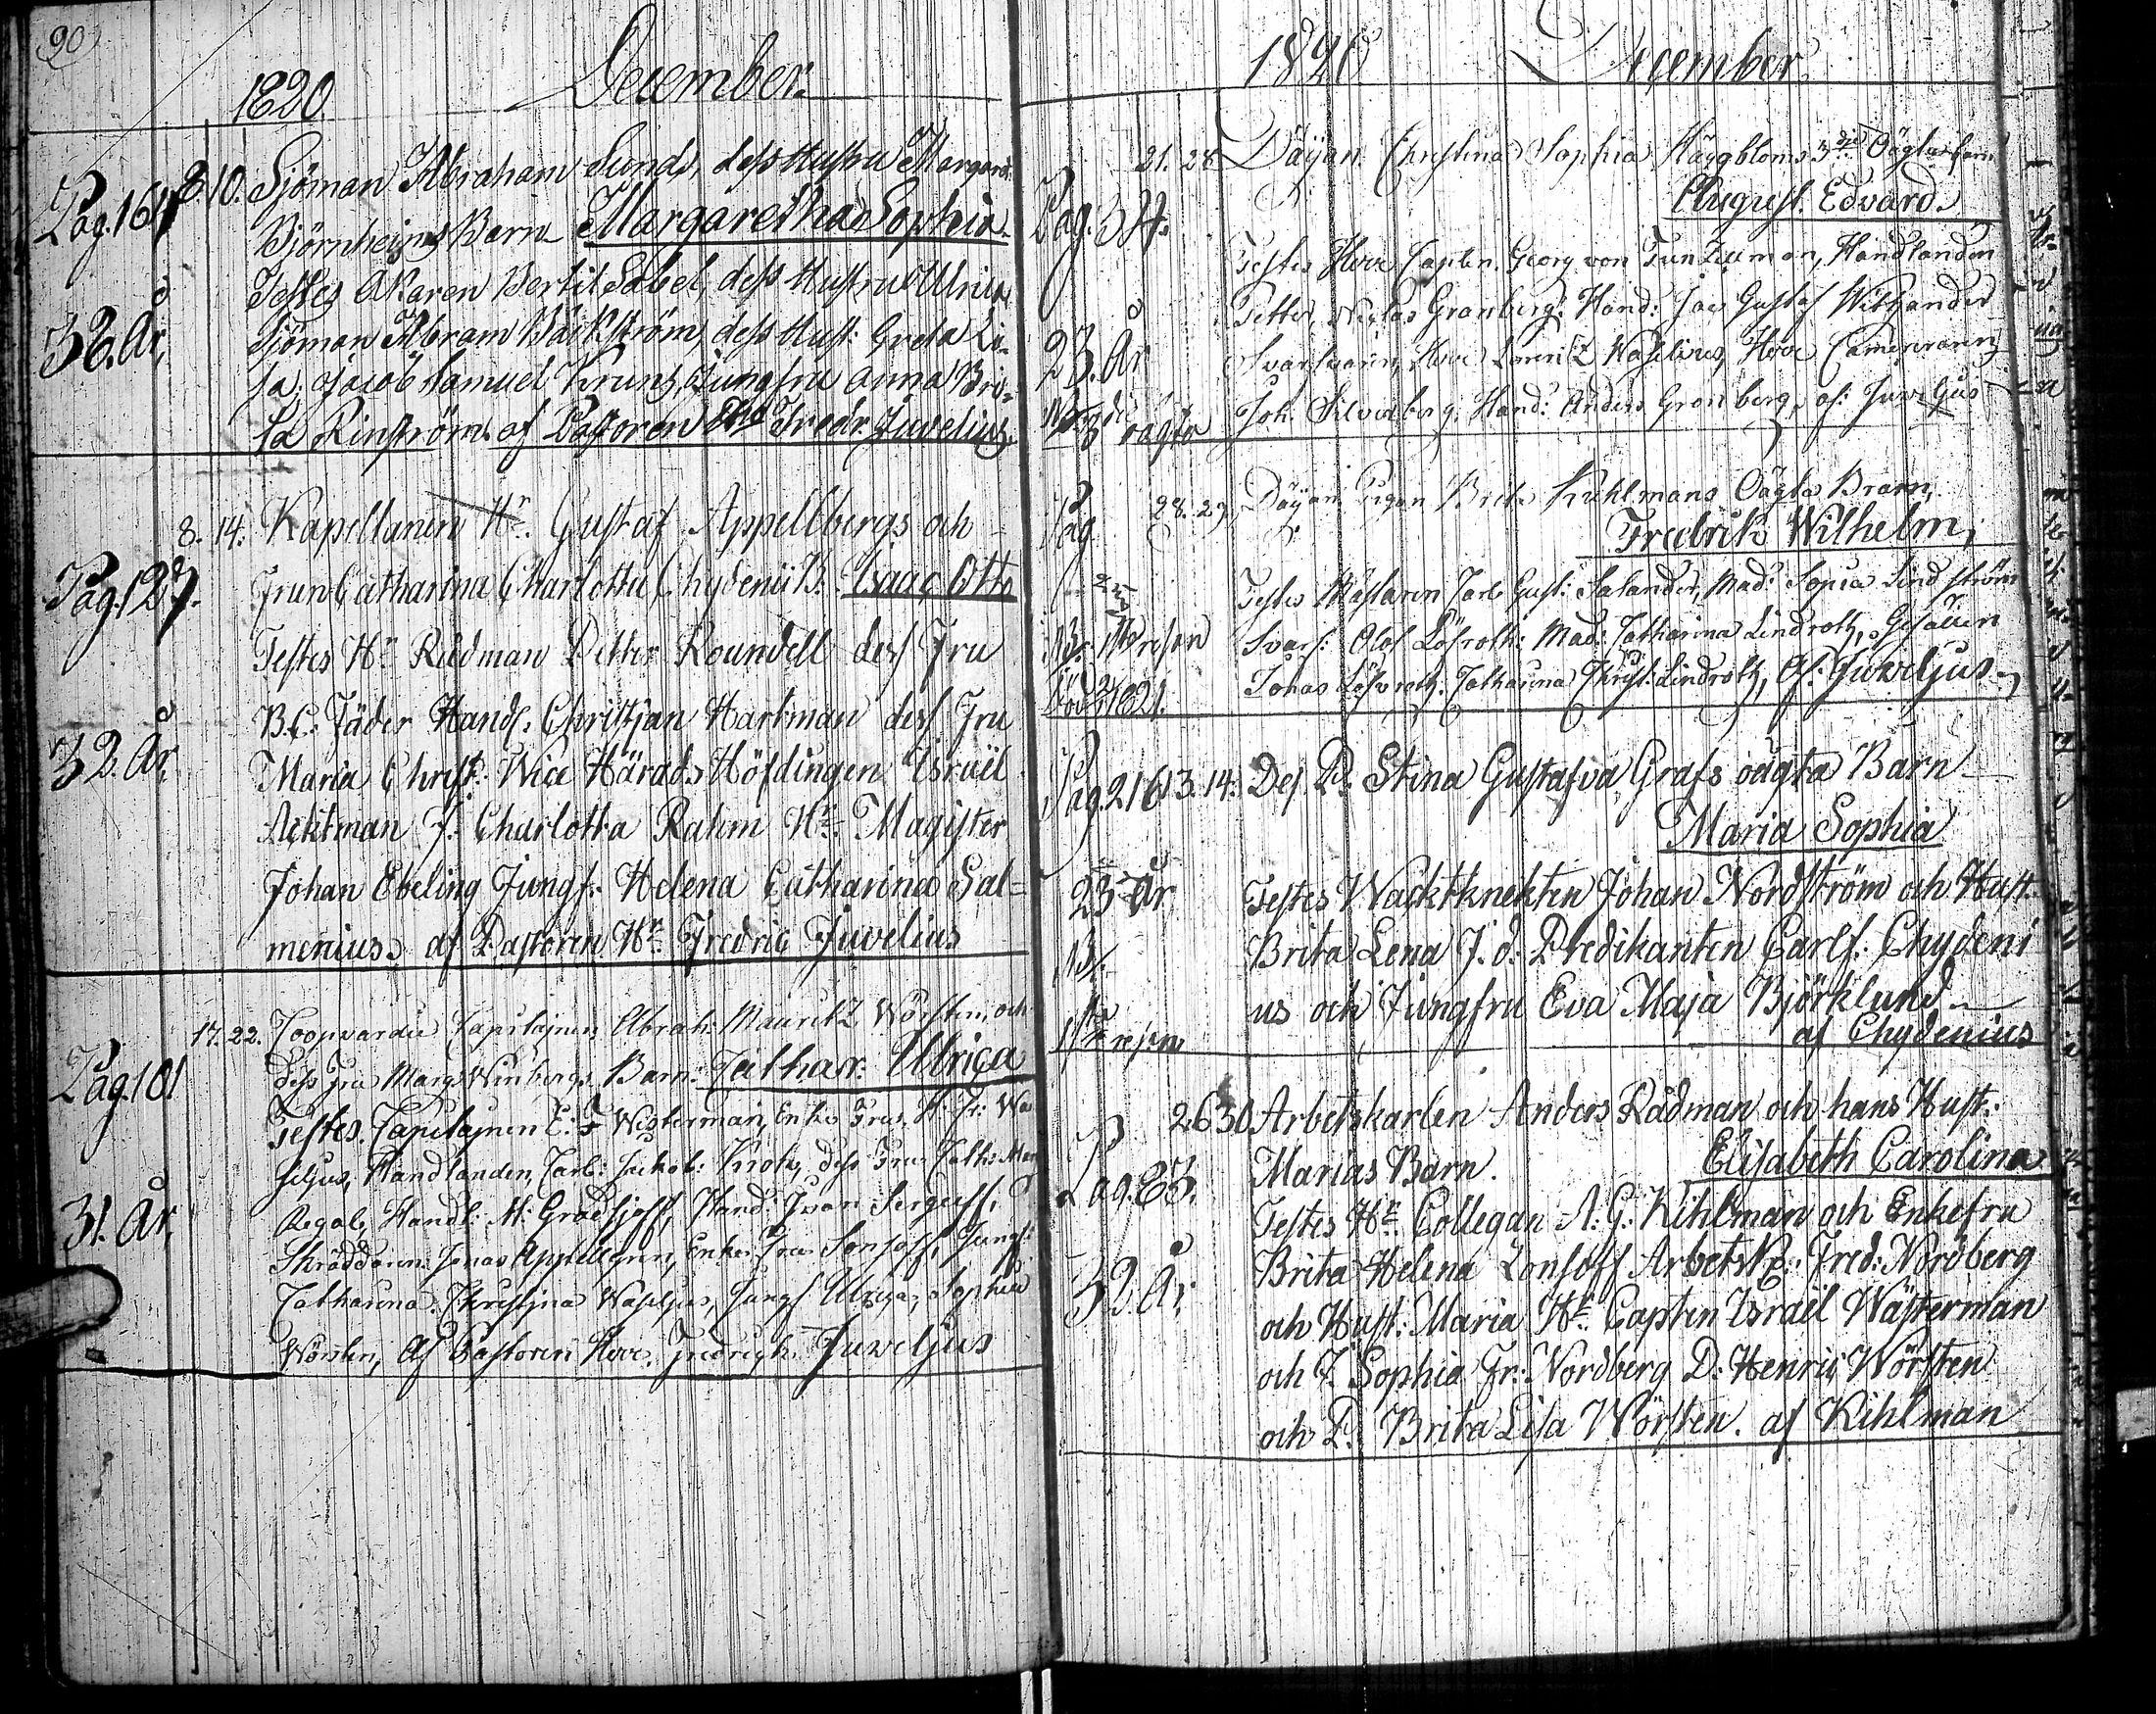 90
1820. December.
Pag. 161 8. 10. Sjöman Abraham Lund, dess Hustru Margaret:
Björnheijms Barn Margaretha Sophia.
Testes Åkaren Bertil Sabel, dess Hustru Ulrica
32. År, Sjöman Abram Bäckström, dess Hust: Greta Li-
sa. Jacob Samuel Jungfru Anna Bri-
ta Rinström. af Pastoren Fredr. Juvelius.
8. 14. Kapellanen Hr. Gustaf Appellbergs och
Pag. 127. Frun Catharina Charlotta Chydenii B. Isaac Otto
Testes Hr Rådman Petter Roundell dess Fru
B. C. Jäder Handl: Christjan Hartman dess Fru
32. År, Maria Christ: Wice Härads Höfdingen Israël
Acktman J. Charlotta Rahm Hr. Magister
Johan Ebeling Jungf: Helena Catharina Sal=
menius. af Pastoren Hr. Fredric Juvelius
17. 22. Coopvardie Capitajnen Abrah: Mauritz Wörsten, och
Pag. 101 dess Fru Marg: Winbergs Barn: Cathar: Ulrica
Testes. Capitajnen E: F Westerman, Enke Fru
Handlanden, Carl: Jakob: dess Fru Cath:
31. År, Handl: M: Hand: Iwan Sergeeff,
Skräddaren Jonas Appellgren, Enke Fru Jungf:
Catharina Christina Waseljus, Jungf Ulrica, Sophia
Wörsten, Af Pastoren Herr Fredrich Juveljus
1820 December
21. 28 Däijan Christina Sophia Häggbloms 3dje Oägta barn
Pag. 34. August. Edvard.
Testes Herr Capten. Georg von Handlanden
Petter, Niclas Granberg: Hand: Jac Gustaf
23. År Herr Laurentz Waselius, Herr
3die oägta Joh. Silverberg, Hand: Anders Gronberg, af: Juveljus
Pag 28. 29, Däijan Pigan Brita Kuhlmans Oägta Brarn,
Fredrik Wilhelm,
Testes Mästaren Carl Gust: Salander, Mad: Sopia Lindström
Svarf: Olof Löfroth: Mad: Catharina Lindroth, Gesällen
1821. Jonas Löfvroth: Catharina Christ: Lindroth, Af: Juveljus
Pag. 216 13. 14: Dej. P. Stina Gustafva Grafs oägta Barn
Maria Sophia
23 År Testes Wacktknekten Johan Nordström och Hust.
Brita Lena J. d. Predikanten Carl f: Chydeni
us och Jungfru Eva Maja Björklund
af Chydenius
26 30 Arbetskarlen Anders Rådman och hans Hust.
Pag. 83. Marias Barn. Elisabeth Carolina
Testes Hr. Collegan A. G. Kihlman och Enkefru
Brita Helena Lonsoff Arbets K: Fred: Nordberg
32. År och Hust: Maria Hr. Capten Israël Wästerman
och J. Sophia Fr: Nordberg D: Henric Wörsten
och P: Brita Lisa Wörsten. af Kihlman